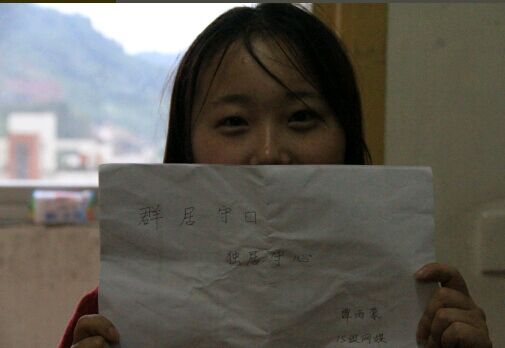 群居守口
独居守心
谭雨蒙
15级网媒